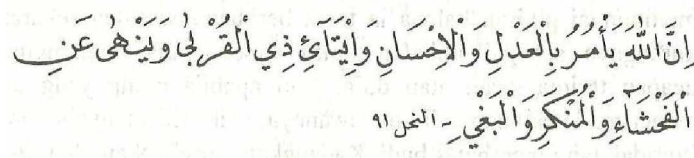 اِنَّ اللّٰهَ يَأْمُرُ بِالْعَدْلِ وَالْاِحْسَانِ وَاِيْتَآئِ ذِي الْقُرْبٰى وَيَنْهٰى عَنِ
الْفَحْشَآءِ وَالْمُنْكَرِ وَالْبَغْيِ - النحل ٩١